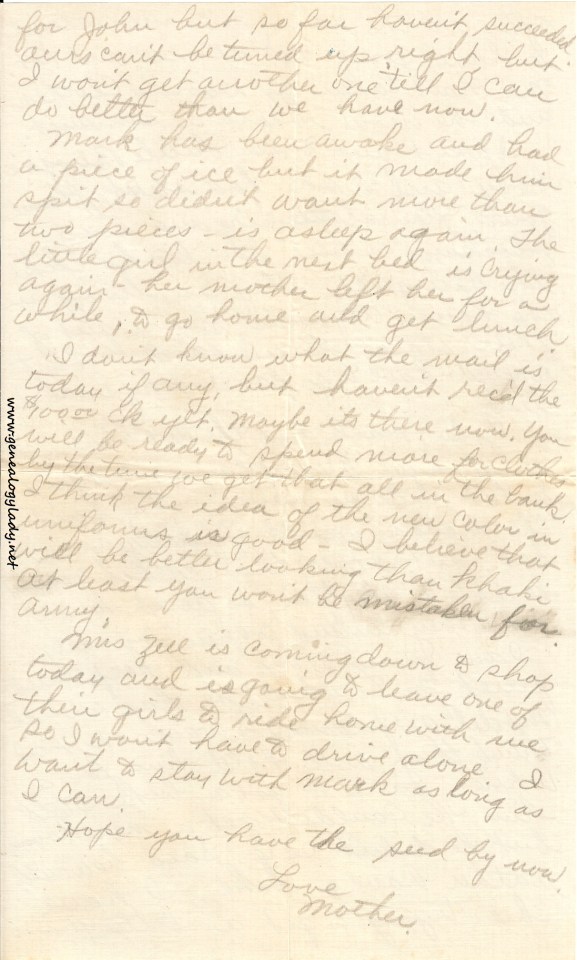 for John but so far haven't succeeded.
ours can't be tuned up right but
I won't get another one till I can
do better than we have now.
Mark has been awake and had
a piece of ice but it made him
spit so didn't want more than
two pieces - is asleep again. The
little girl in the next bed is crying
again - her mother left her for a
while, to go home and get lunch.
I don't know what the mail is
today if any, but haven't rec'd the
ck yet. Maybe its there now. You
will be ready to spend more for clothes
by the time we get that all in the bank.
I think the idea of the new color in
uniforms is good - I believe that
will be better looking than khaki
At least you won't be mistaken for
army.
Mrs Zell is coming down to shop
today and is going to leave one of
their girls to ride home with me
so I won't have to drive alone I
want to stay with Mark as long as
I can.
Hope you have the seed by now.
Love
Mother.
www.genealogylady.net